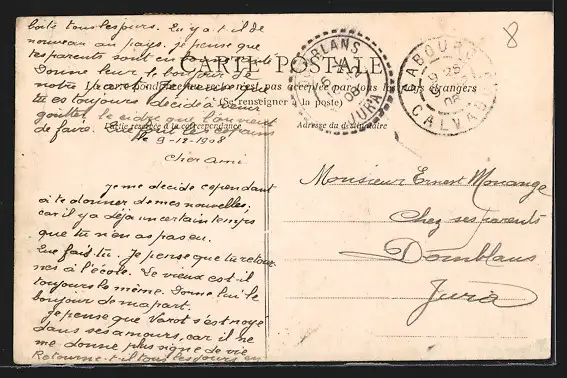 boîte tous les jours. Qu'y a-t-il de
nouveau au pays. je pense que
tes parents sont en bonne santé
Donne leur le bonjour de
notre part
tu es toujours décidé à venir
goûter le cidre que l'on vient
de faire.
CARTE POSTALE
La correspondance au recto n'est pas acceptée par tous les pays étrangers
(Se renseigner à la poste)
Partie réservée à la correspondance
Adresse du destinataire
DOMBLANS
JURA
CABOURG
25
08
CALVADOS
8
le 9-12-1908
Cher Ami
je me décide cependant
à te donner de mes nouvelles.
car il y a déjà un certain temps
que tu n'en as pas eu.
Que fais-tu. Je pense que tu retour-
nes à l'école. Le vieux est-il
toujours le même. Donne lui le
bonjour de ma part.
Je pense que Varot s'est noyé
dans ses amours, car il ne
me donne plus signe de vie
Retourne-t-il tous les jours en
Monsieur Ernest Monange
Chez ses parents
Domblans
Jura